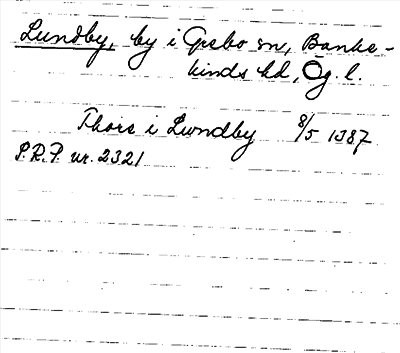 Lundby, by i Grebo sn, Banke-
kinds hd, Ög. l.
Thors i Lundby 8/5 1387
S.R.P. nr. 2321